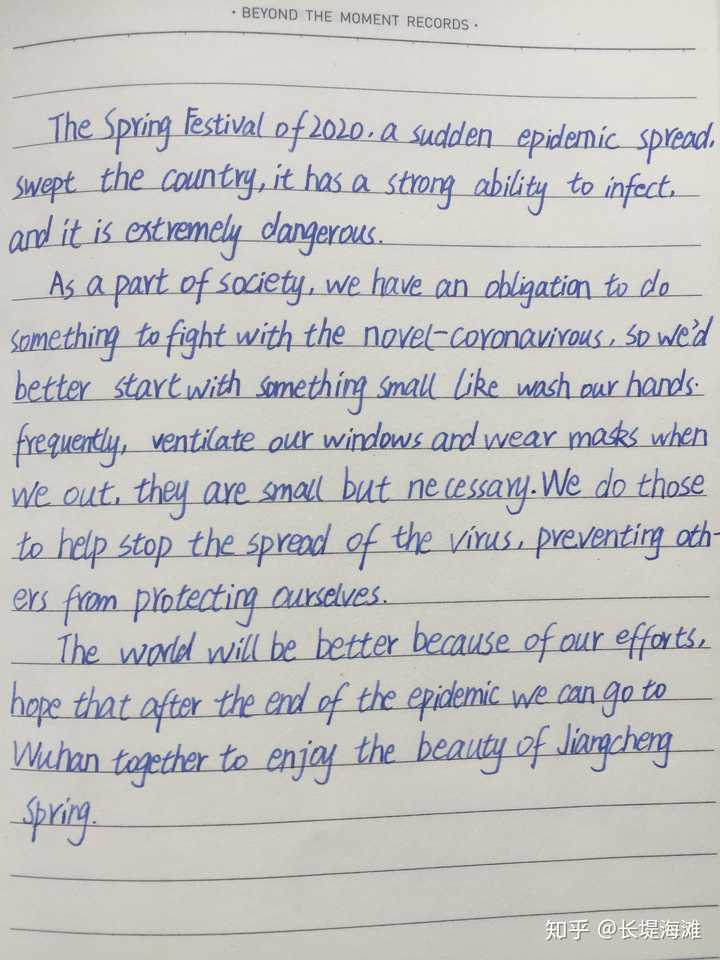 · BEYOND THE MOMENT RECORDS ·
The Spring Festival of 2020. a sudden epidemic spread,
swept the country, it has a strong ability to infect,
and it is extremely dangerous.
As a part of society, we have an obligation to do
something to fight with the novel-coronavirous, so we'd
better start with something small like wash our hands.
frequently, ventilate our windows and wear masks when
we out. they are small but necessary. We do those
to help stop the spread of the virus, preventing oth-
ers from protecting ourselves.
The world will be better because of our efforts,
hope that after the end of the epidemic we can go to
Wuhan together to enjoy the beauty of Jiangcheng
spring.
知乎 @长堤海滩